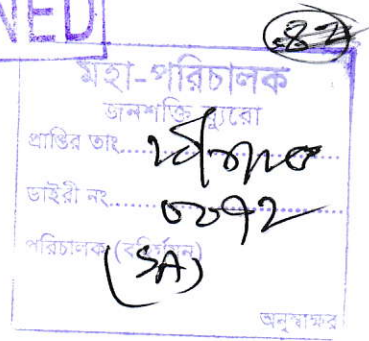 NED
82
মহা-পরিচালক
জনশক্তি ব্যুরো
প্রাপ্তির তাং
ডাইরী নং
পরিচালক (বহির্গমন)
(SA)
অনুস্বাক্ষর